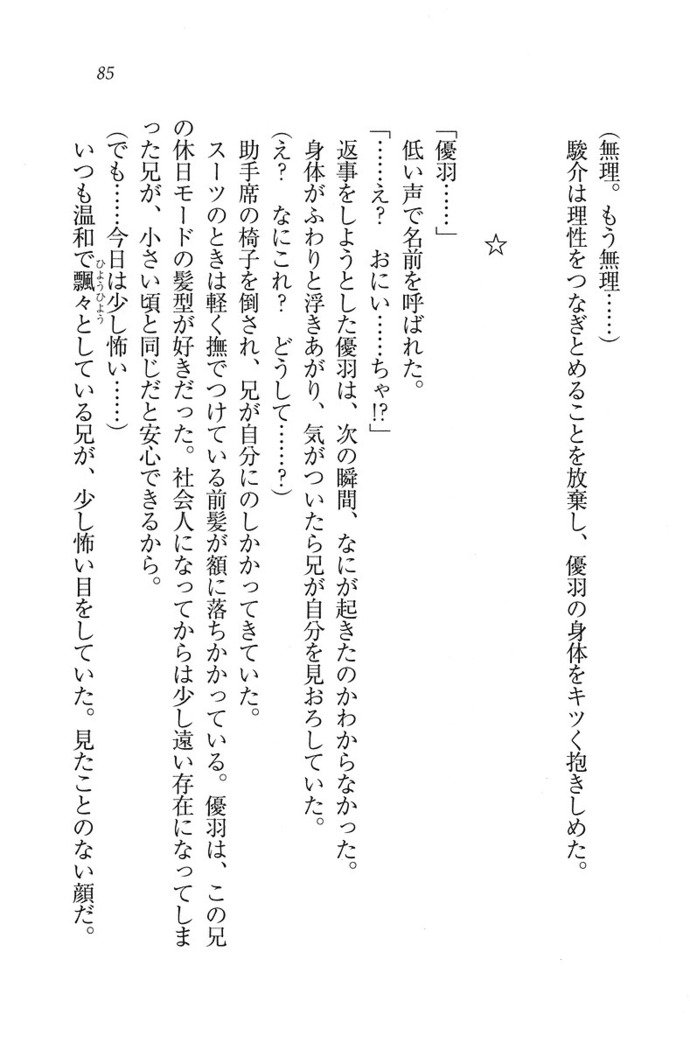 85
(無理。もう無理……)
駿介は理性をつなぎとめることを放棄し、優羽の身体をキツく抱きしめた。
☆
「優羽……」
低い声で名前を呼ばれた。
「……え？　おにい……ちゃ!?」
返事をしようとした優羽は、次の瞬間、なにが起きたのかわからなかった。
身体がふわりと浮きあがり、気がついたら兄が自分を見おろしていた。
(え？　なにこれ？　どうして……？)
助手席の椅子を倒され、兄が自分にのしかかってきていた。
スーツのときは軽く撫でつけている前髪が額に落ちかかっている。優羽は、この兄
の休日モードの髪型が好きだった。社会人になってからは少し遠い存在になってしま
った兄が、小さい頃と同じだと安心できるから。
(でも……今日は少し怖い……)
いつも温和で飄々としている兄が、少し怖い目をしていた。見たことのない顔だ。
ひょうひょう